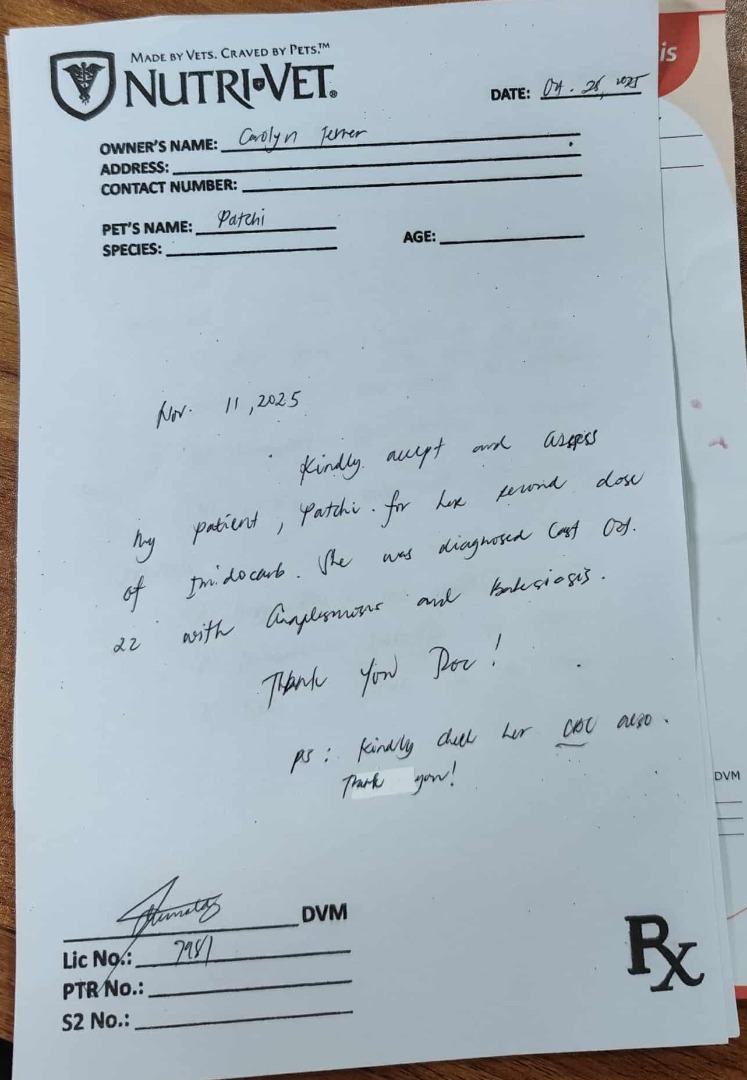 MADE BY VETS. CRAVED BY PETS.™
NUTRI-VET®
DATE: Oct. 28, 2025
OWNER'S NAME: Carolyn Ferrer
ADDRESS:
CONTACT NUMBER:
PET'S NAME: Patchi
SPECIES:
AGE:
Nov. 11, 2025
Kindly accept and assess
my patient, Patchi. for her second dose
of Imidocarb. She was diagnosed last Oct.
22 with Anaplasmosis and Babesiosis.
Thank You Doc!
PS: Kindly check her CBC also.
Thank you!
DVM
Lic No.: 7981
PTR No.:
S2 No.:
Rx
is
DVM